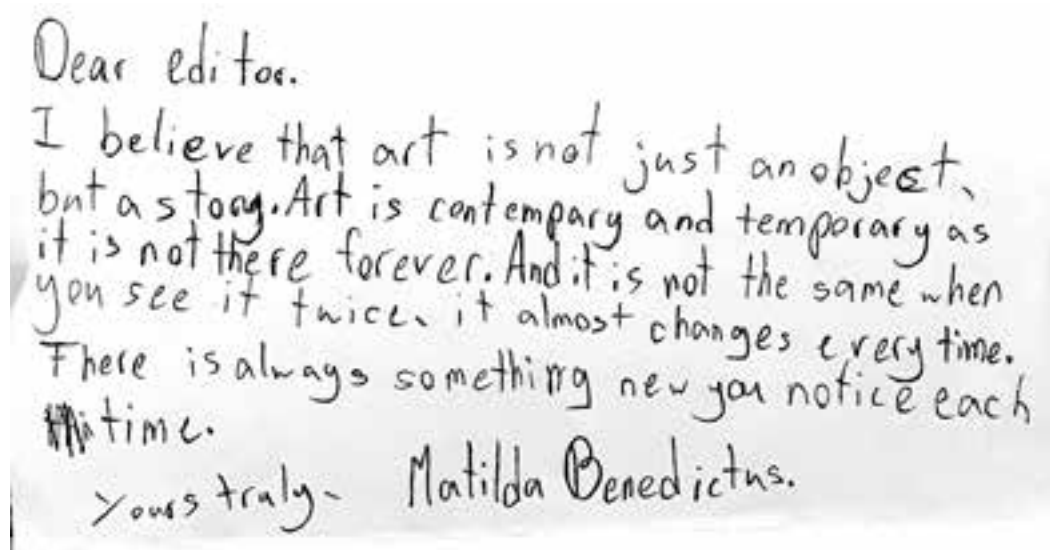 Dear editor.
I believe that art is not just an object,
but a story. Art is contempary and temporary as
it is not there forever. And it is not the same when
you see it twice, it almost changes every time.
There is always something new you notice each
time.
Yours truly- Matilda Benedictus.